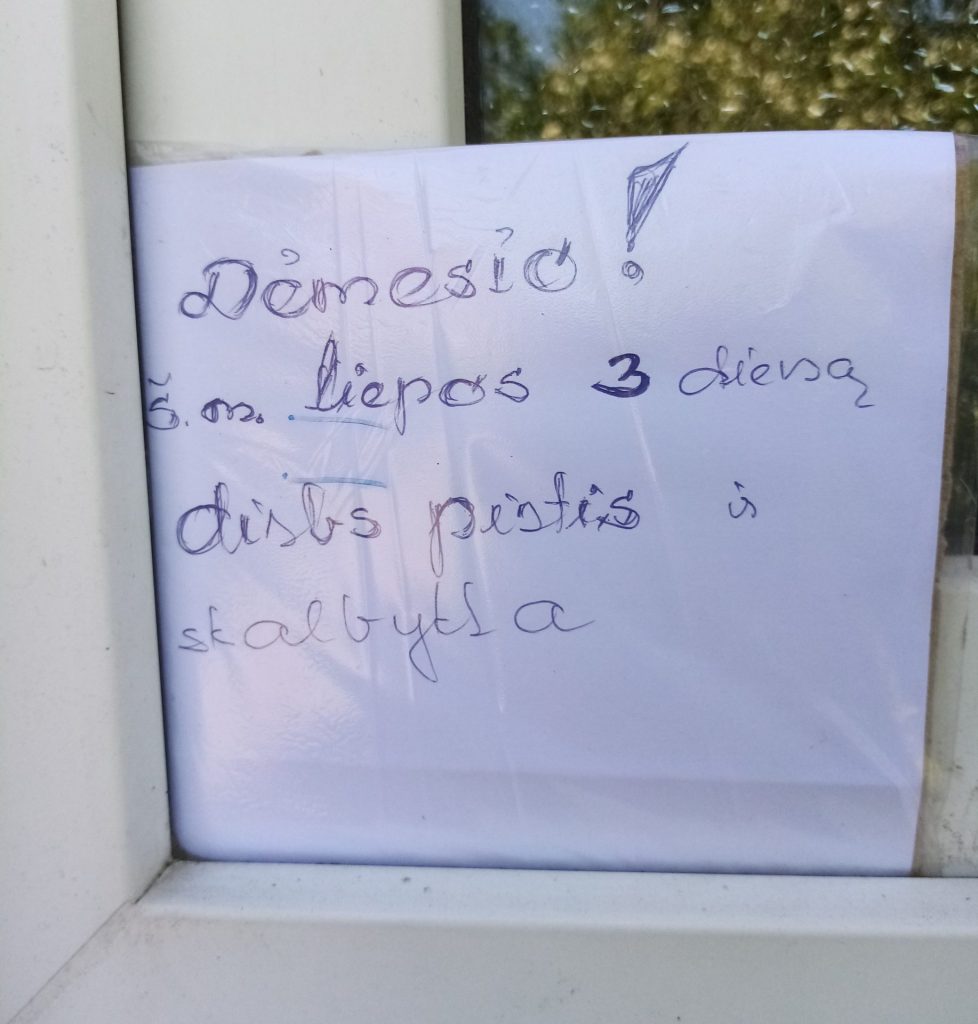 Dėmesio!
š.m. liepos 3 dieną
dirbs pirtis ir
skalbykla